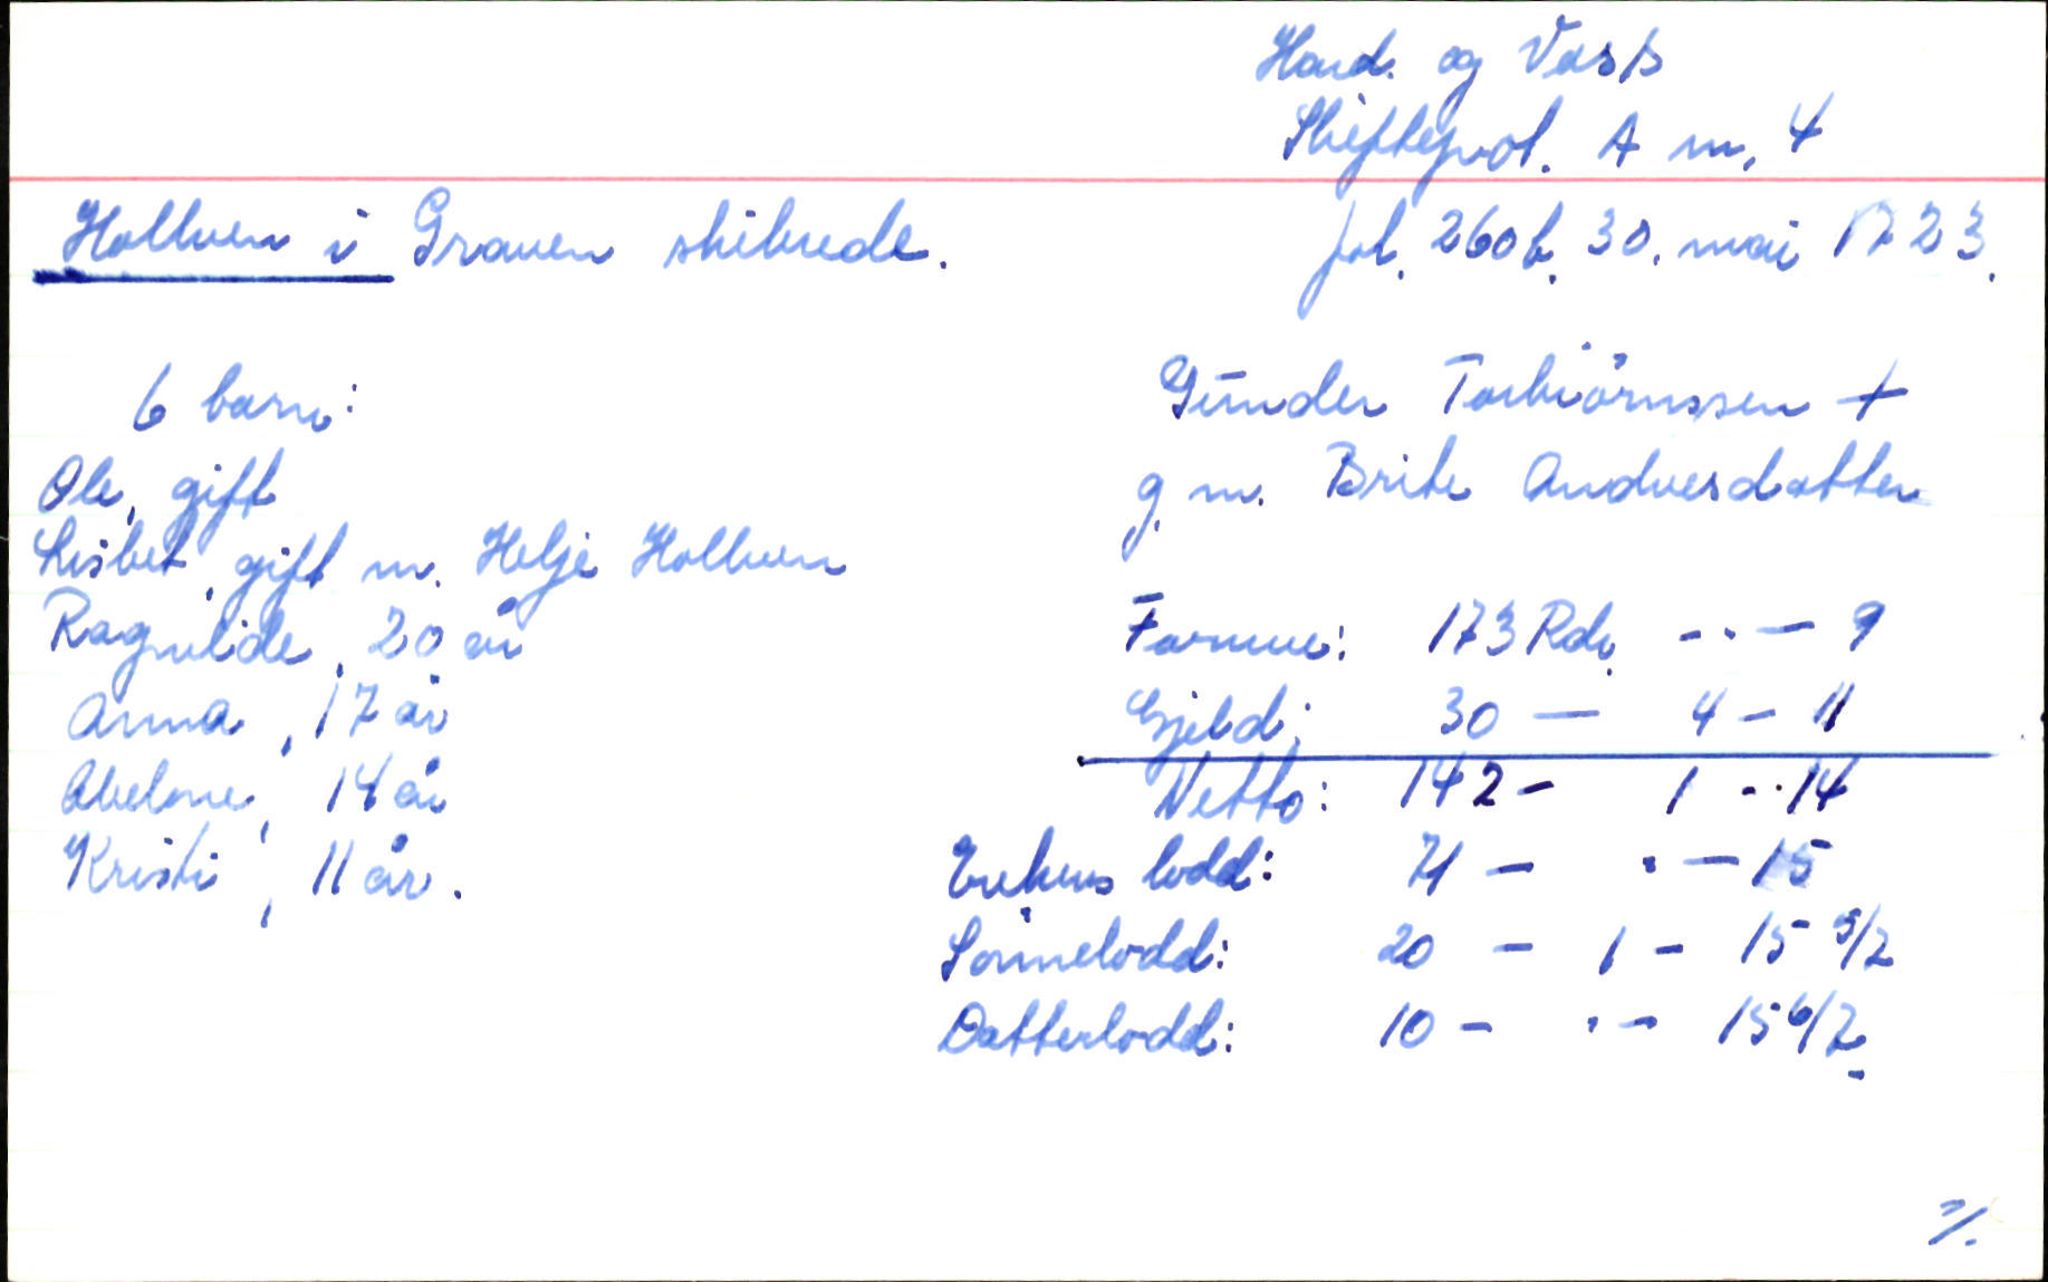 Hard. og Voss
Skifteprot. A nr. 4
Hollven i Graven skibrede.
fol. 260b. 30. mai 1723.
6 barn:
Ole, gift
Lisbet, gift m. Helje Hollven
Ragnilde, 20 år
Anna, 17 år
Abelone, 14 år
Kristi, 11 år.
Gunder Torbiörnssen +
g. m. Brite Andversdatter
Formue: 173 Rdr. - . - 9
Gjeld: 30 - 4 - 11
Netto: 142 - 1 - 14
Enkens lodd: 71 - . - 15
Sönnelodd: 20 - 1 - 15 5/7
Datterlodd: 10 - . - 15 6/7.